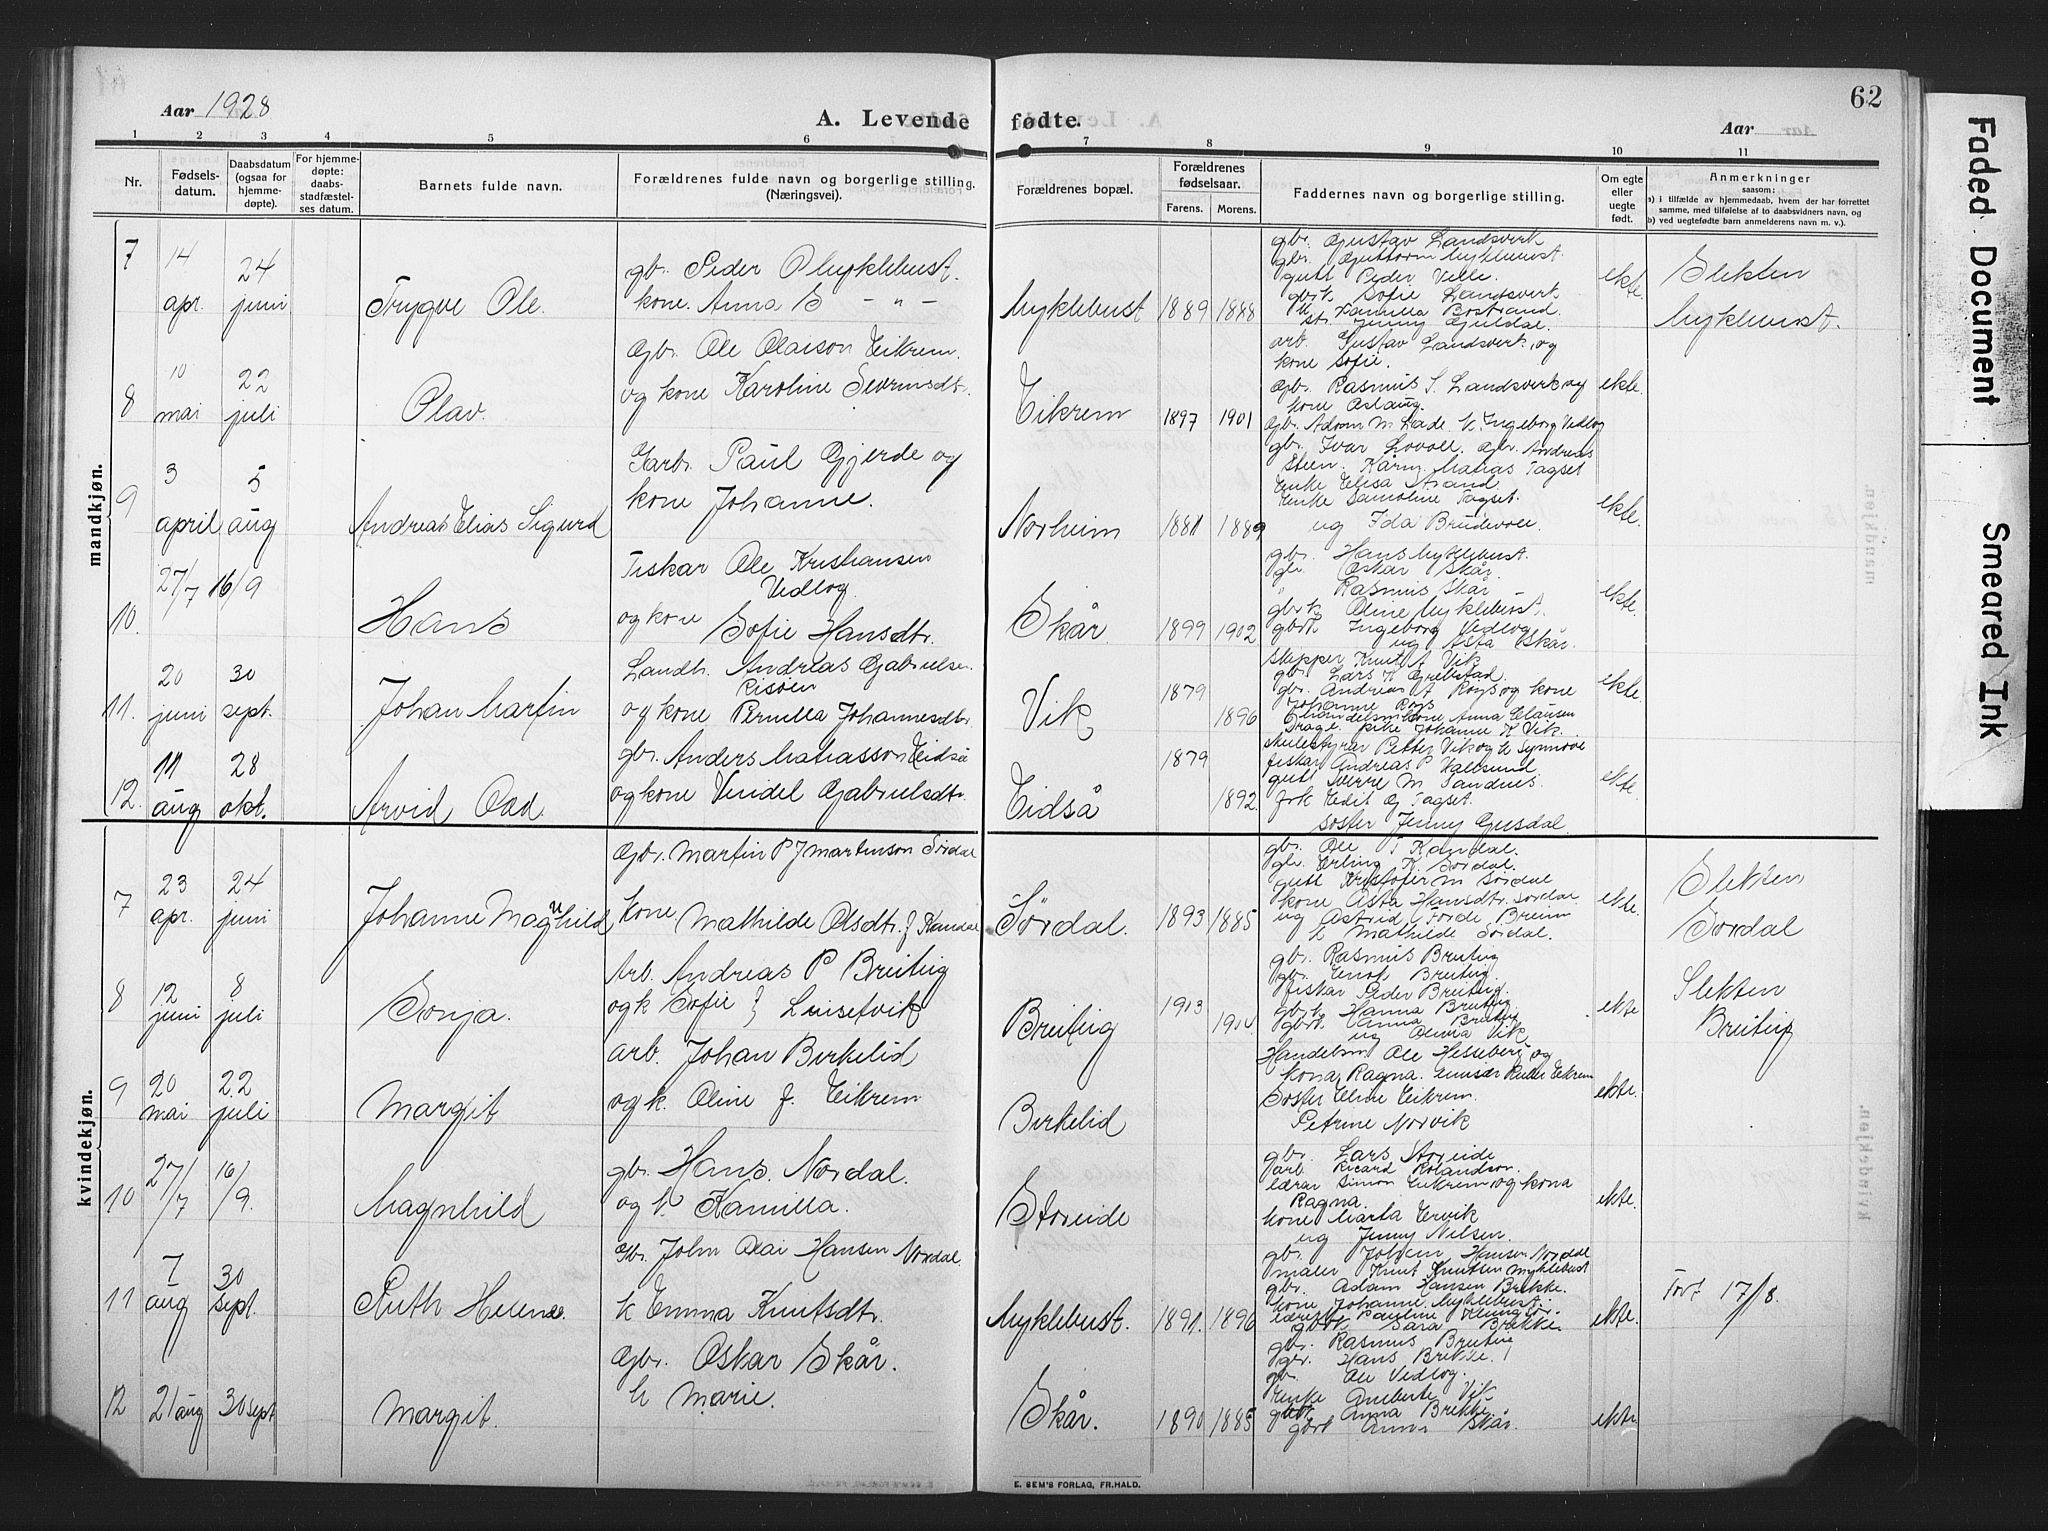 62
Aar 1928
A. Levende fødte.
Aar
1 2 3 4 5 6 7 8 9 10 11
Nr.
Fødselsdatum.
Daabsdatum (ogsaa for hjemmedøpte).
For hjemmedøpte: daabsstadfæstelses datum.
Barnets fulde navn.
Forældrenes fulde navn og borgerlige stilling. (Næringsvei).
Forældrenes bopæl.
Forældrenes fødselsaar.
Farens. Morens.
Faddernes navn og borgerlige stilling.
Om egte eller uegte født.
Anmerkninger
saasom:
a) i tilfælde av hjemmedaab, hvem der har forrettet samme, med tilføielse af to daabsvidners navn, og
b) ved uegtefødte barn anmelderens navn m. v.).
mandkjøn.
7
14 apr.
24 juni
Trygve Ole.
gbr. Peder O Myklebust.
kone. Anna S — " —
Myklebust
1889 1888
gbr. Gustav Landsverk
gbr. Guttorm Myklebust.
gutt Peder Velle.
gbrk Sofie Landsverk
ekte.
Slekten
Myklebust.
8
10 mai
22 juli
Olav.
Gbr. Ole Olaison Eikrem.
og kone Karoline Severinsdtr.
Eikrem
1897 1901
arb. Gustav Landsverk, og
kone Sofie.
Gbr. Rasmus S. Landsverk og
kone Aslaug.
ekte.
9
3 april
5 aug
Andreas Elias Sigurd
Paul Gjerde og
kone Johanne.
Norheim
1881 1889
Steen. Matias Tagset
Enke Elisa Strand
Enke Samoline Tagset.
ug Ida Brudevoll
ekte.
10.
27/7 16/9
Hans
Fiskar Ole Kristiansen
Vedlog.
og kone Sofie Hansdtr.
Skår.
1899 1902
gbr. Hans Myklebust.
Oskar Skår.
" Rasmus Skår
gbrk Oline Myklebust.
gbrk Ingeborg Vedlog
ug Asta Skår.
ekte.
11.
20 juni
30 sept.
Johan Martin
Landh. Andreas Gabrielsen
Risøen
og kone Pernilla Johannesdtr
Vik
1879
1896
Skipper Knut A Vik
gbr. Lars K Grebstad.
gbr. Andreas A Røys og kone
Johanne Røys
ekte.
12.
11 aug
28 okt.
Arvid Odd.
gbr. Anders Matiasson Eidså
og kone Vendel Gabrielsdtr.
Eidså
1879
1892
Skulestyrar Petter Vik og k Synnøve
fiskar Andreas P Vallsund
gutt Sverre M Sandnes.
frk Edit G Tagset.
søster Jenny Gusdal.
ekte
kvindekjøn.
7
23 apr.
24 juni
Johanne Magnhild
Gbr. Martin P J Martinson Sørdal
kone. Mathilde Olsdtr. f Kandal
Sørdal.
1893 1885
gbr. Ole T Kandal.
gbr. Erling K. Sørdal.
gutt Kristofer M Sørdal
kone Asta Hansdtr. Sørdal
ug Astrid Førde Breim
k Mathilde Sørdal.
ekte.
Slekten
Sørdal
8
12 juni
8 juli
Sonja.
Arb. Andreas P Breiteig
og k Sofie f Luisetvik
Breiteig
1903
gbr. Rasmus Breiteig
gbr. Enok Breiteig.
fiskar Peder Breiteig.
gbrk Hanna Breiteig
gbrk Anna Breiteig
ekte
Slekten
Breiteig
9
20 mai
22 juli
Margit
arb. Johan Birkelid
og k. Oline f. Eikrem
Birkelid
Handelsm Ole Helleberg og
kona Ragna.
Søster Eline Eikrem.
Petrine Norvik
ekte.
10
27/7
16/9.
Magnhild
gbr. Hans. Nordal.
og k. Kamilla.
Storeide
gbr. Lars Storeide
arb. Rikard Rolandson.
lærar Simon Eikrem, og kona
Ragna.
kone Marta Ervik
ug Jenny Nilsen.
ekte.
11
7 aug
30 sept.
Ruth Helene.
Gbr. John Olai Hansen Nordal.
k Emma Knutsdtr.
Myklebust.
1891. 1896
gbr. Johan Hansen Nordal
maler Knut Knutsen Myklebust
gbr. Adam Hansen Brekke.
kone Johanne. Myklebust.
gbrk Sara Brekke.
ekte.
Født 17/8.
12
21 aug
30 sept
Margit.
Gbr. Oskar Skår.
k Marie.
Skår.
1890 1885
gbr. Rasmus Breiteig
gbr. Hans Brekke.
gb. Ole Vedlog.
Enke Anberte Vik
gbrk Anna Brekke
gbrk Anna Skår.
ekte
E. SEM'S FORLAG, FR.HALD.
Faded Document
Smeared Ink